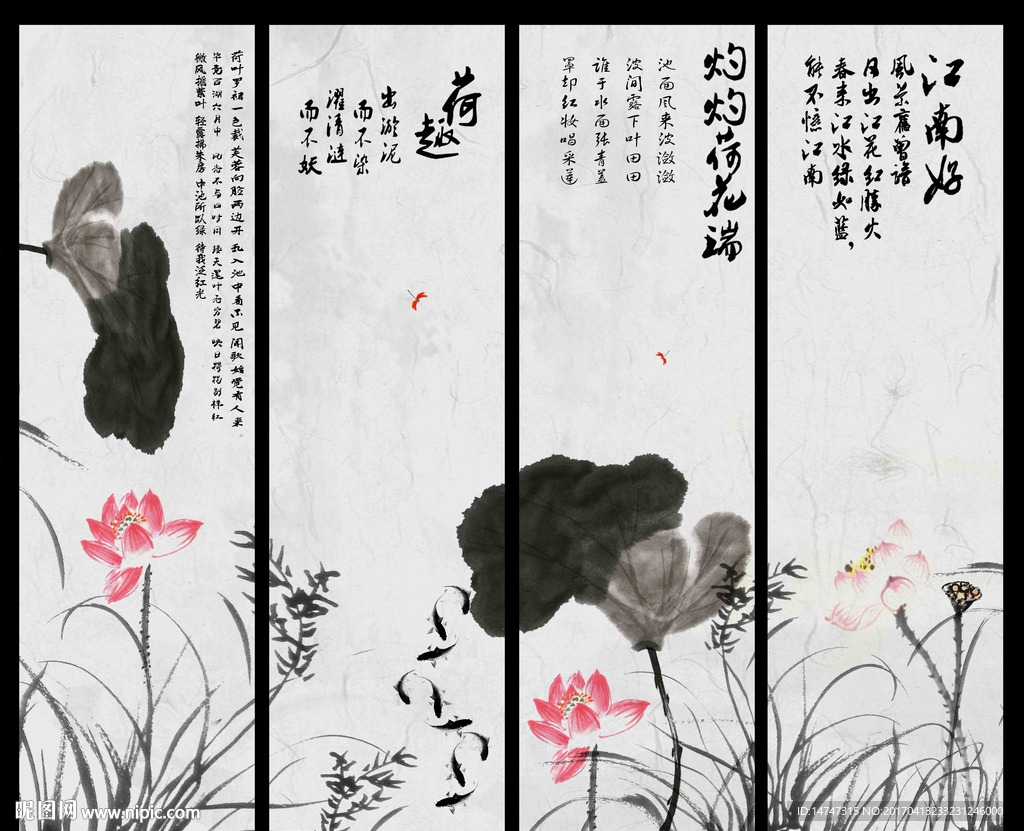 江南好
風景舊曾諳
日出江花红勝火
春来江水绿如蓝，
能不憶江南
灼灼荷花瑞
池面风来波潋潋
波间露下叶田田
谁于水面张青盖
罩却红妆唱采莲
荷趣
出淤泥
而不染
濯清涟
而不妖
荷叶罗裙一色裁 芙蓉向脸两边开 乱入池中看不见 闻歌始觉有人来
毕竟西湖六月中 风光不与四时同 接天莲叶无穷碧 映日荷花别样红
微风摇紫叶 轻露拂朱房 中池所以绿 待我泛红光
昵图网 www.nipic.com
ID:14747315 NO:20170418233231246000